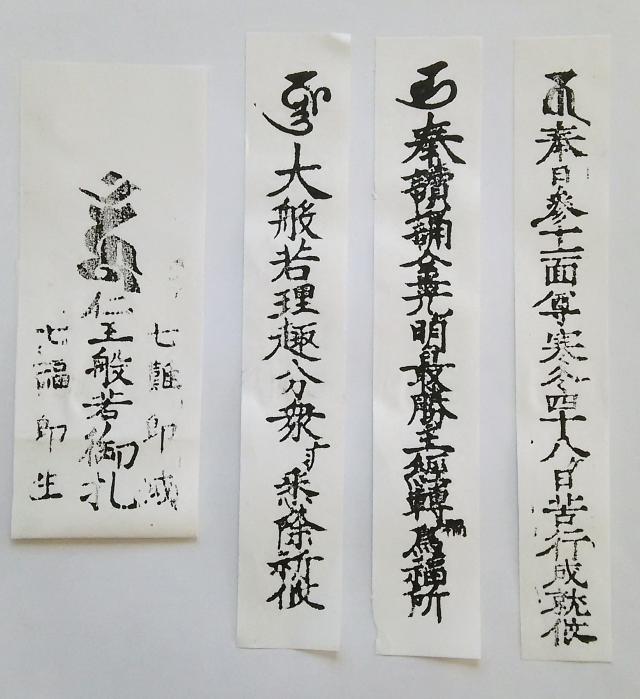 奉日參十一面尊寒冬四十八日苦行成就攸
奉讀誦金光明最勝王經轉禍為福所
大般若理趣分衆悉除祈攸
七難即滅
仁王般若御札
七福即生